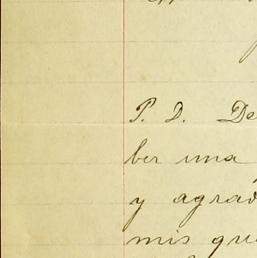 P. D. De
ber una
y agrad
mis qu